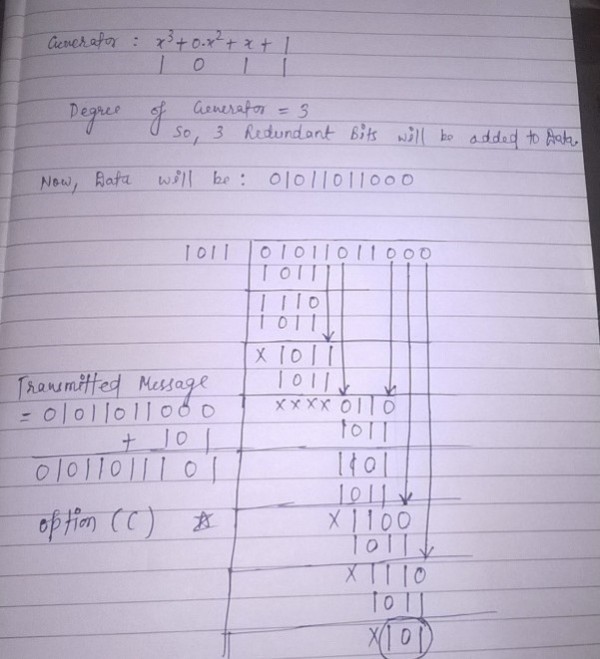 Generator : x³+0.x²+x+1
1 0 1 1
Degree of Generator = 3
So, 3 Redundant Bits will be added to Data.
Now, Data will be : 01011011000
1011 01011011000
1011
1110
1011
x 1011
1011
xxxx 0110
1011
1101
1011
x 1100
1011
x 1110
1011
x 101
Transmitted Message
= 01011011000
+ 101
01011011101
option (C)